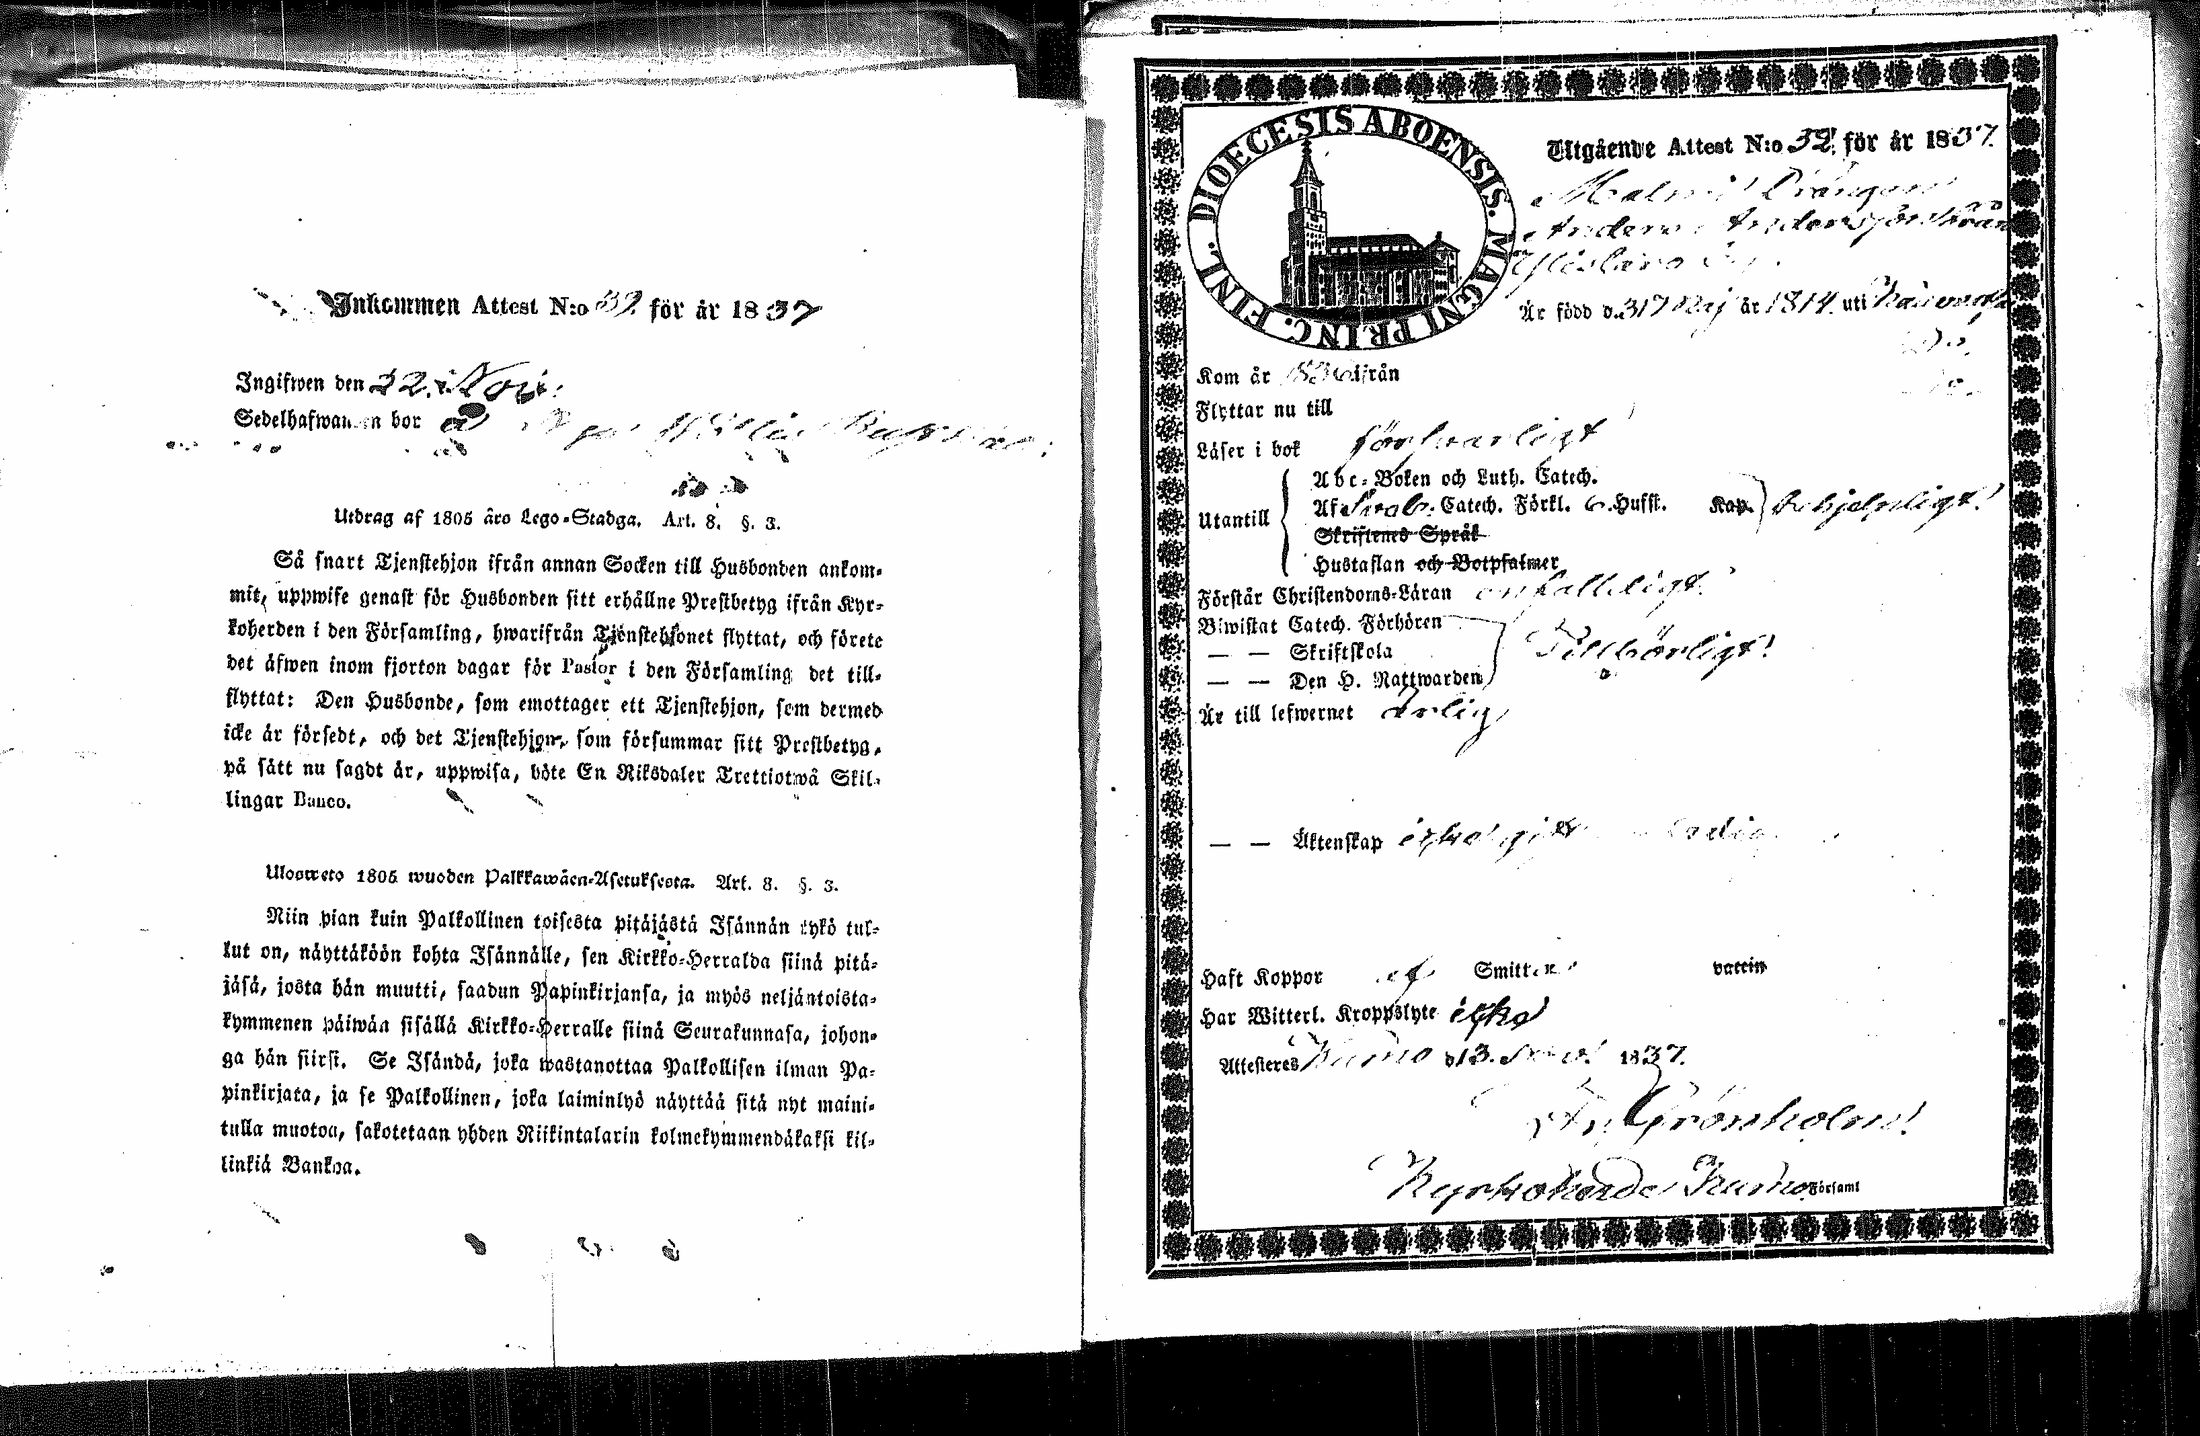 Inkommen Attest N:o 32. för år 1837
Ingifwen den 22. Nov:
Sedelhafwanden bor å
Utdrag af 1805 års Lego-Stadga. Art. 8. §. 3.
Så snart Tjenstehjon ifrån annan Socken till Husbonden ankom-
mit, uppwise genast för Husbonden sitt erhållne Prestbetyg ifrån Kyr-
koherden i den Församling, hwarifrån Tjenstehjonet flyttat, och förete
det äfwen inom fjorton dagar för Pastor i den Församling det till-
flyttat: Den Husbonde, som emottager ett Tjenstehjon, som dermed
icke är försedt, och det Tjenstehjon, som försummar sitt Prestbetyg,
på sätt nu sagdt är, uppwisa, böte En Riksdaler Trettiotwå Skil-
lingar Banco.
Ulosweto 1805 wuoden Palkkawäen-Asetuksesta. Art. 8. §. 3.
Niin pian kuin Palkollinen toisesta pitäjästä Isännän tykö tul-
lut on, näyttäköön kohta Isännälle, sen Kirkko-Herralda siinä pitä-
jäsä, josta hän muutti, saadun Papinkirjansa, ja myös neljäntoista-
kymmenen päiwän sisällä Kirkko-Herralle siinä Seurakunnasa, johon-
ga hän siirsi. Se Isändä, joka wastanottaa Palkollisen ilman Pa-
pinkirjata, ja se Palkollinen, joka laiminlyö näyttää sitä nyt maini-
tulla muotoa, sakotetaan yhden Riikintalarin kolmekymmendäkaksi kil-
linkiä Bankoa.
DIOECESIS ABOENSIS. MAGNI PRINC. FINL.
Utgående Attest N:o 32. för år 1837.
Drängen
Anders Andersson från
Är född d. 31 Maj år 1814 uti
Kom år 1836 ifrån
Flyttar nu till
Läser i bok försvarligt
Abc-Boken och Luth. Catech.
Utantill Af Sveb. Catech. Förkl. 6. Hufst. Kap. behjelpligt
Skriftenes Språk
Hustaflan och Botpsalmer
Förstår Christendoms-Läran enfalleligt.
Biwistat Catech. Förhören
— — Skriftskola Tillbörligt
— — Den H. Nattwarden
Är till lefwernet ärlig
— — Äktenskap ledig
Haft Koppor ej Smitt. vaccin
Har Witterl. Kroppslyte icke
Attesteres Kumo d. 13. Nov. 1837.
Grönholm
Kyrkoherde i Kumo Församl